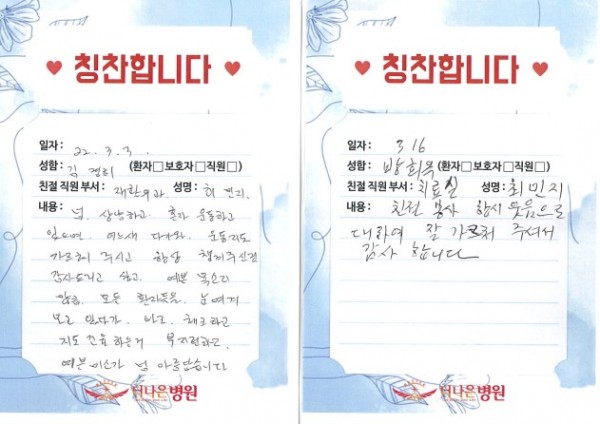 칭찬합니다
일자 : 22. 3. 3.
성함 : 김 경희 (환자□보호자□직원□)
친절 직원 부서 : 재활치료과. 성명 : 최 민지.
내용 : 넘. 상냥하고. 혼자 운동하고
있으면. 어느새 다가와. 운동지도
가르쳐 주시고 항상 챙겨주신점
감사드리고 싶고. 예쁜 목소리
모든 환자분들. 눈여겨
보고 있다가. 바로. 체크하고
지도 하는게
예쁜 넘 아름답습니다
더나은병원
칭찬합니다
일자 : 3 16
성함 : 방희옥 (환자□보호자□직원□)
친절 직원 부서 : 치료실 성명 : 최민지
내용 : 친절 봉사 항시 웃음으로
대하여 잘 가르쳐 주셔서
감사 합니다
더나은병원